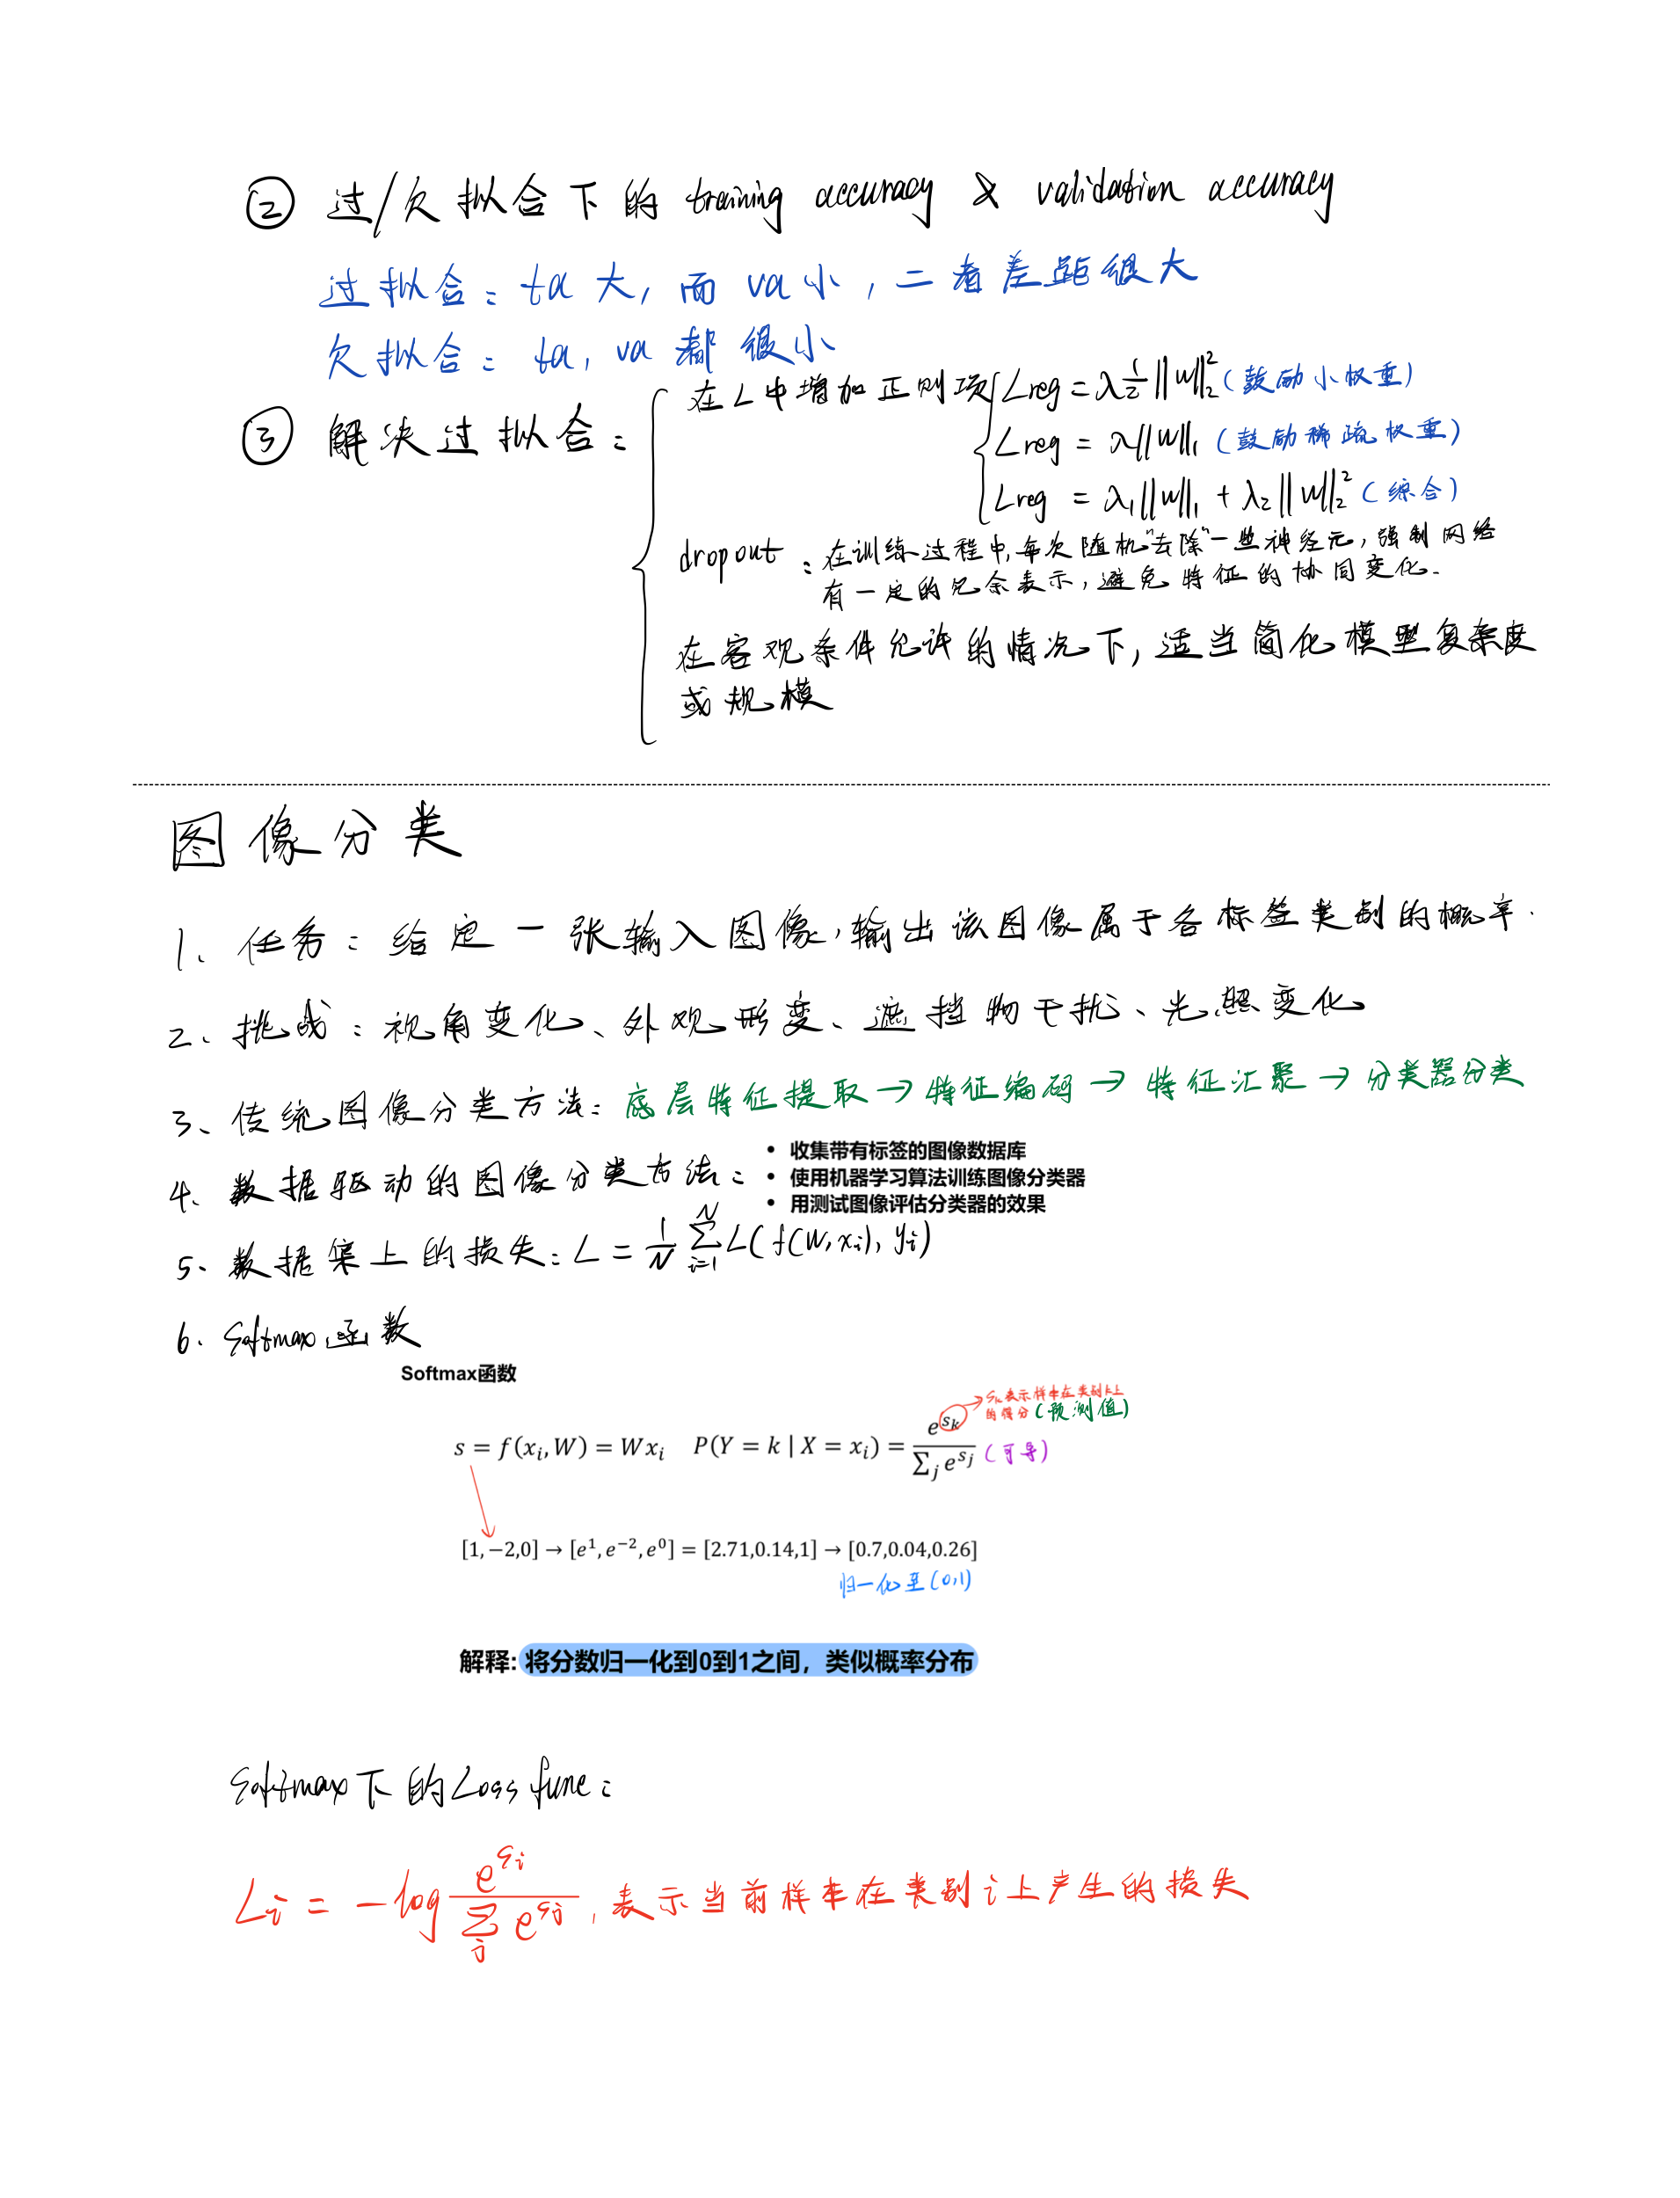 ② 过/欠拟合下的 training accuracy & validation accuracy
过拟合：ta大，而va小，二者差距很大
欠拟合：ta，va都很小
③ 解决过拟合：
在L中增加正则项 Lreg = λ½||W||₂² (鼓励小权重)
Lreg = λ||W||₁ (鼓励稀疏权重)
Lreg = λ₁||W||₁ + λ₂||W||₂² (综合)
dropout：在训练过程中，每次随机"去除"一些神经元，强制网络
有一定的冗余表示，避免特征的协同变化.
在客观条件允许的情况下，适当简化模型复杂度
或规模
图像分类
1、任务：给定一张输入图像，输出该图像属于各标签类别的概率.
2、挑战：视角变化、外观形变、遮挡物干扰、光照变化
3、传统图像分类方法：底层特征提取→特征编码→特征汇聚→分类器分类
4、数据驱动的图像分类方法：
• 收集带有标签的图像数据库
• 使用机器学习算法训练图像分类器
• 用测试图像评估分类器的效果
5、数据集上的损失：L = 1/N ∑_{i=1}^{N} L(f(W,xi), yi)
6、Softmax函数
Softmax函数
Sk表示样本在类别k上
的得分(预测值)
s = f(xᵢ,W) = Wxᵢ P(Y = k | X = xᵢ) = e^{s_k} / ∑_j e^{s_j} (可导)
[1,−2,0] → [e¹,e⁻²,e⁰] = [2.71,0.14,1] → [0.7,0.04,0.26]
归一化至(0,1)
解释: 将分数归一化到0到1之间，类似概率分布
Softmax下的Loss func：
Li = −log e^{si} / ∑_j e^{sj}，表示当前样本在类别i上产生的损失